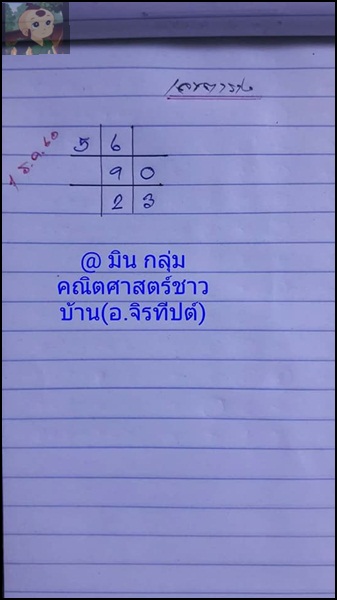 เลขตาราง
1 ธ.ค. 60
5 6
9 0
2 3
@ มิน กลุ่ม
คณิตศาสตร์ชาว
บ้าน(อ.จิรทีปต์)